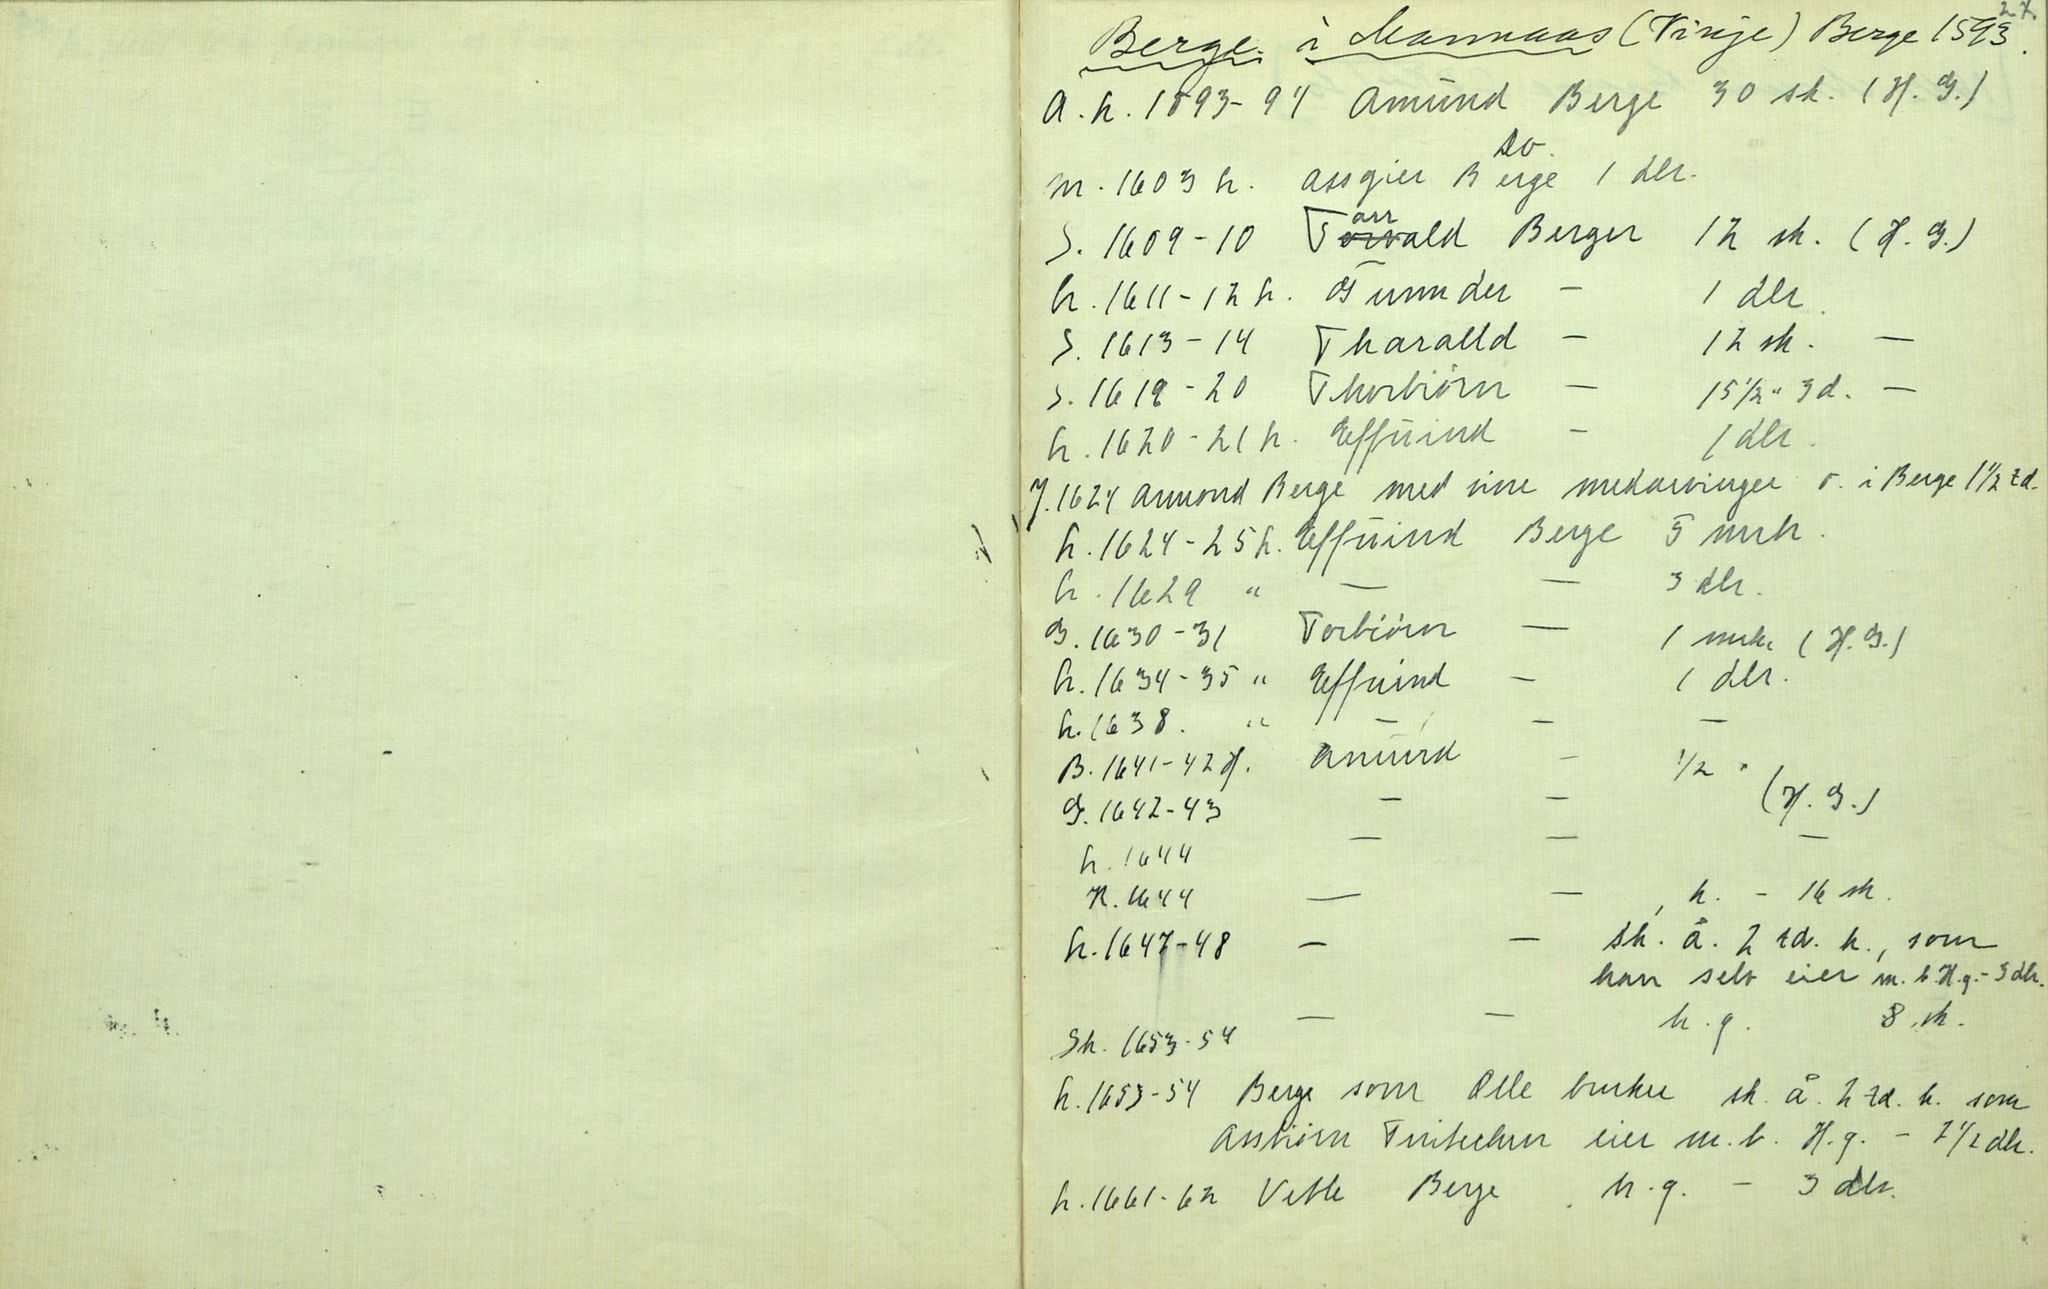 27.
Berge i Mannaas (Vinje) Berge 1593.
A. h. 1593-94 Amŭnd Berge 30 sk. (H. G.)
do.
m. 1603 h. assgier Berge 1 dlr.
S. 1609-10 Tarrald Berger 12 sk. (H. G.)
h. 1611-12 h. Gunnder — 1 dlr.
S. 1613-14 Tharalld — 12 sk. —
S. 1619-20 Thorbiörn — 15 1/2 " 3 d. —
h. 1620-21 h. Effŭind — 1 dlr.
J. 1624 Amond Berge med sine medarvinger o. i Berge 1 1/2 td.
h. 1624-25 h. Effŭind Berge 5 mrk.
h. 1629 " — — 3 dlr.
G. 1630-31 Torbiörn — 1 mrk. (H. G.)
h. 1634-35 " Effŭind — 1 dlr.
h. 1638. " — — —
B. 1641-42 H. Amŭnd — 1/2 "
G. 1642-43 — — (H. G.)
h. 1644 — — —
K. 1644 — — , h. - 16 sk.
h. 1647-48 — — sk. å. 2 td. k., som
han selv eier m. b. H. g. - 3 dlr.
Sk. 1653-54 — — h. g. 8 sk.
h. 1653-54 Berge som Olle bruker sk. å. 2 td. k. som
Assbiörn eier m. b. H. g. - 2 1/2 dlr.
h. 1661-62 Vetle Berge . h. g. - 3 dlr.